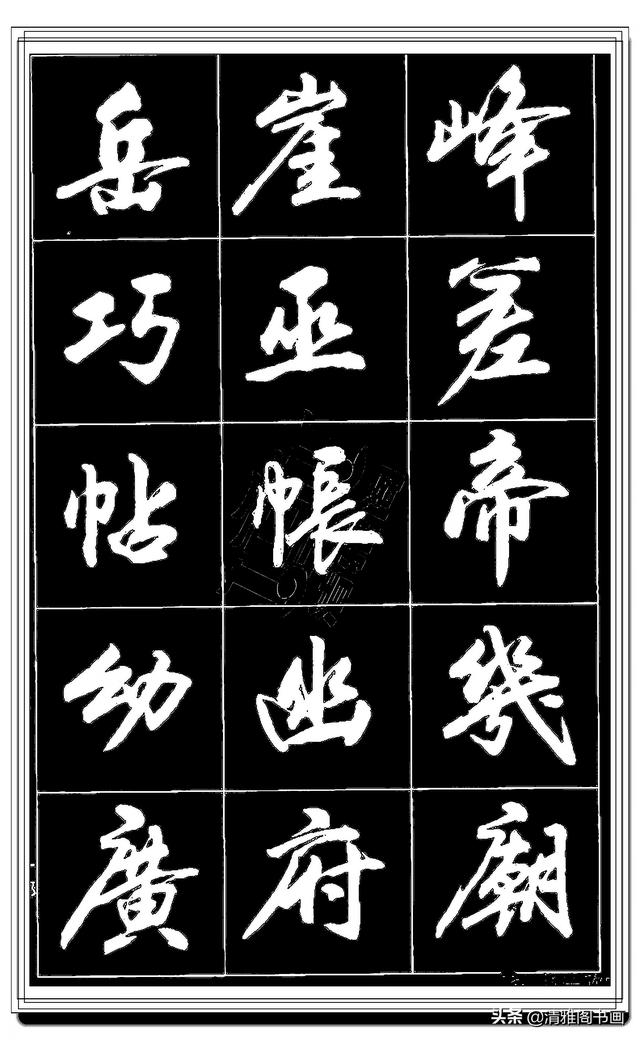 岳崖峰
巧巫差
帖帳帝
幼幽幾
廣府廟
头条 @清雅阁书画